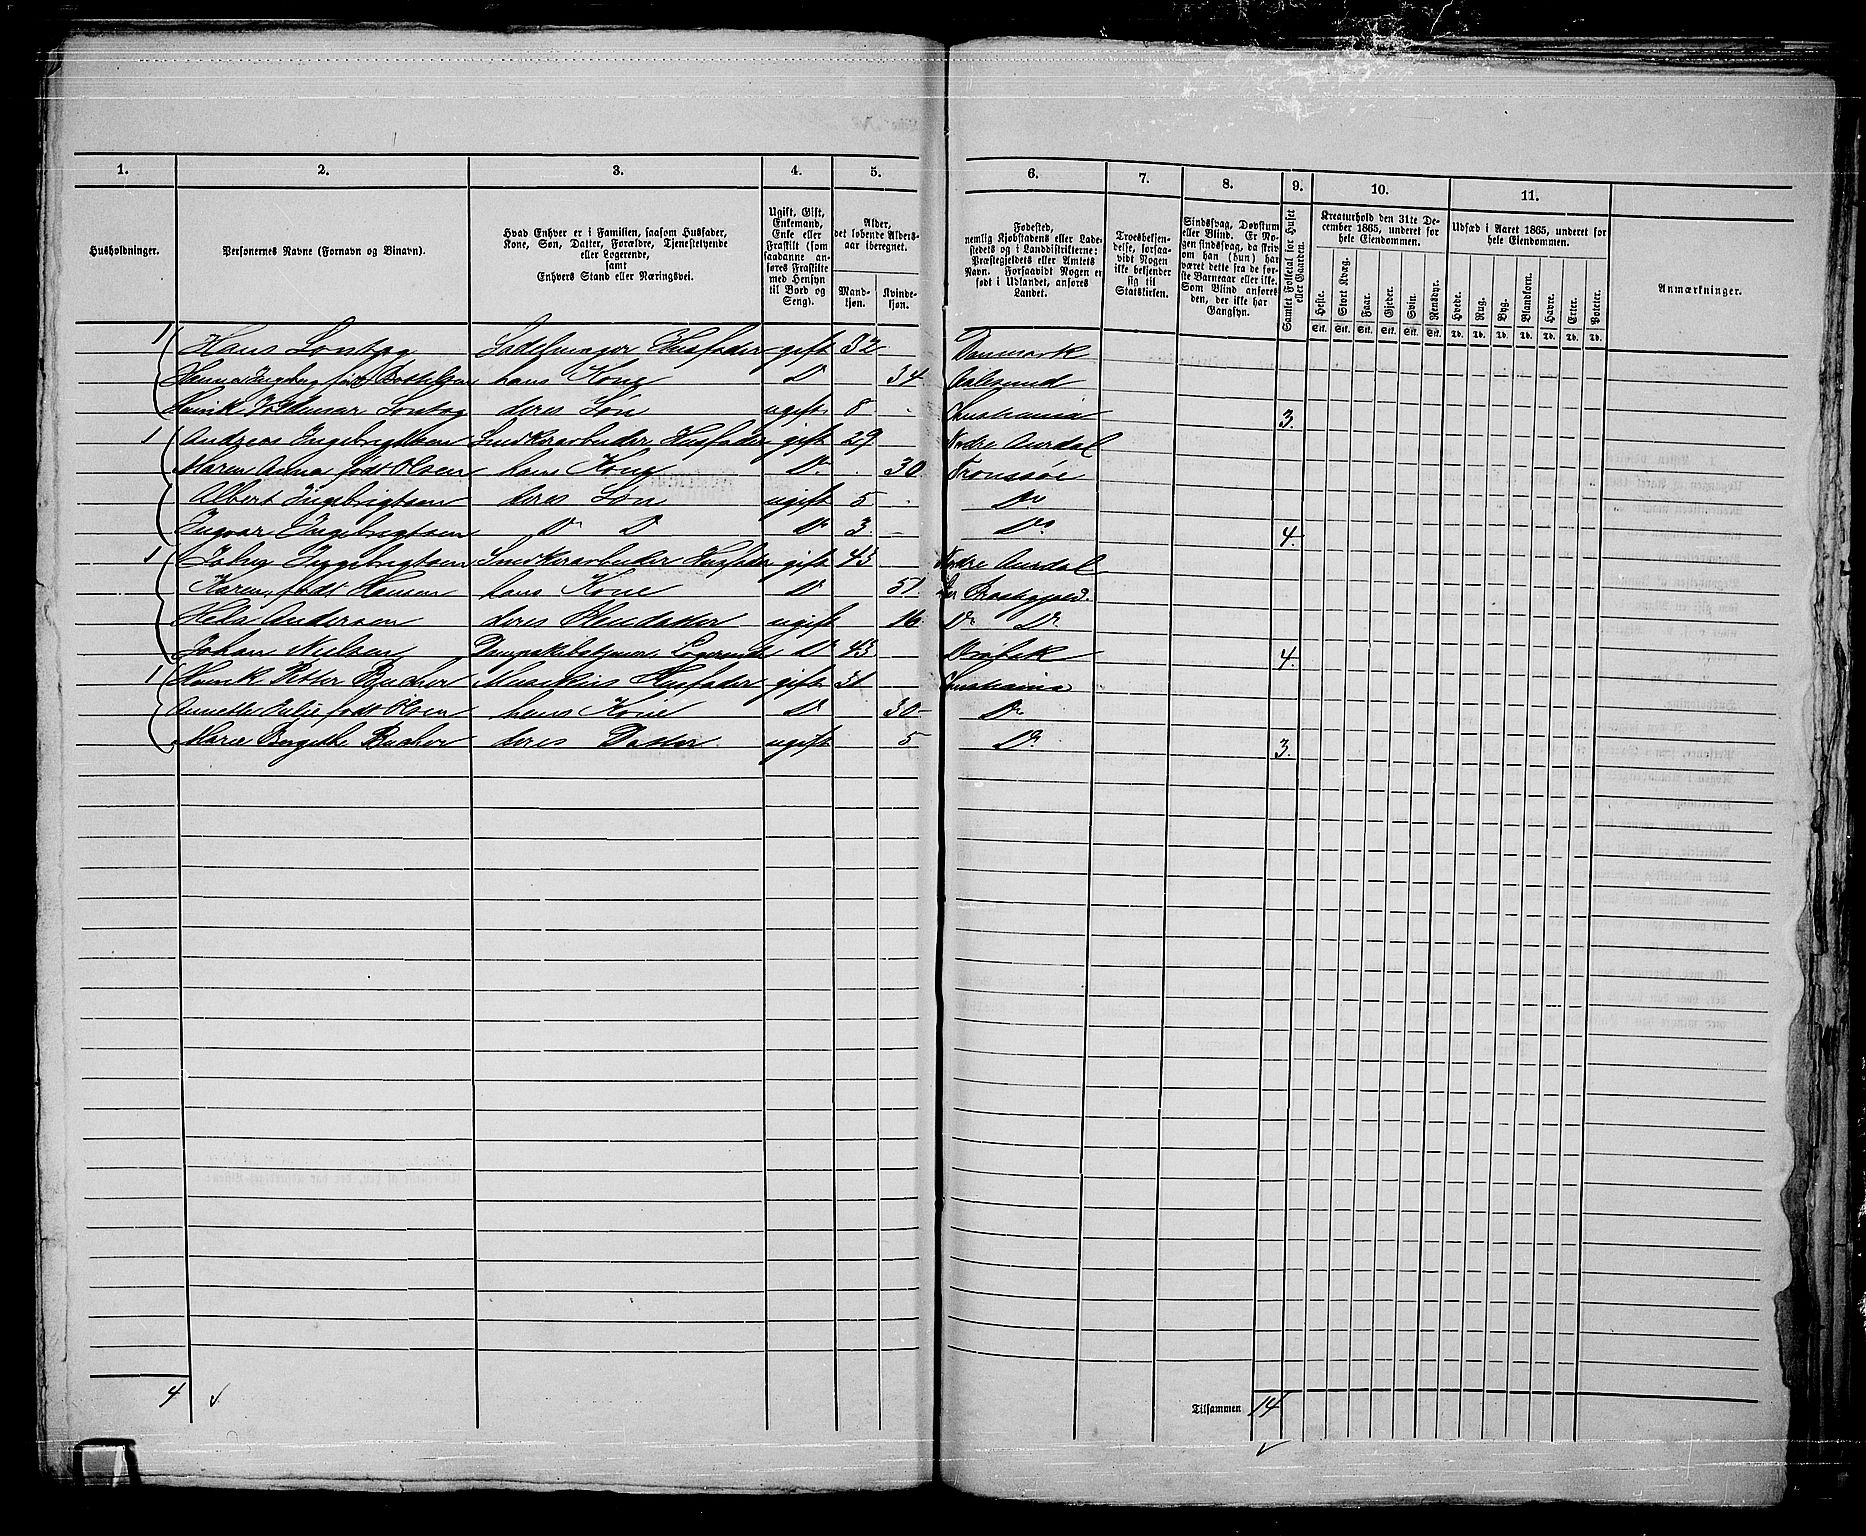 1. 2. 3. 4. 5. 6. 7. 8. 9. 10. 11.
Husholdninger.
Personernes Navne (Fornavn og Binavn).
Hvad Enhver er i Familien, saasom Husfader,
Kone, Søn, Datter, Forældre, Tjenestetyende
eller Logerende,
samt
Enhvers Stand eller Næringsvei.
Ugift, Gift,
Enkemand,
Enke eller
Fraskilt (som
saadanne anføres Fraskilte
med Hensyn
til Bord og
Seng).
Alder,
det løbende Aldersaar iberegnet.
Mandkjøn.
Kvindekjøn.
Fødested,
nemlig Kjøbstadens eller Ladestedets og i Landdistrikterne:
Præstegjeldets eller Amtets
Navn. Forsaavidt Nogen er
født i Udlandet, anføres
Landet.
Troesbekjendelse, forsaavidt Nogen
ikke bekjender
sig til
Statskirken.
Sindssvag, Døvstum
eller Blind. Er Nogen sindssvag, da skriv
om han (hun) har
været dette fra de første Barneaar eller ikke.
Som Blind anføres
den, der ikke har
Gangsyn.
Samlet Folketal for Huset
eller Gaarden.
Kreaturhold den 31te December 1865, underet for
hele Eiendommen.
Heste. Stort Kvæg. Faar. Gjeder. Svin. Rensdyr.
Stk. Stk. Stk. Stk. Stk. Stk.
Udsæd i Aaret 1865, underet for
hele Eiendommen.
Hvede. Rug. Byg. Blandkorn. Havre. Erter. Poteter.
Td. Td. Td. Td. Td. Td. Td.
Anmærkninger.
1 Hans Husfader gift 32 Danmark
født hans Kone Do 34 Aalesund
deres Søn ugift 8 Christiania 3.
1 Andreas Ingebrigtsen Snedkerarbeider Husfader gift 29 Nordre Aurdal
Maren Anna født Olsen hans Kone Do 30 Tromsøe
Albert Ingebrigtsen deres Søn ugift 5 Do
Ingvar Ingebrigtsen Do Do Do 3 Do 4.
1 Ingebrigtsen Snedkerarbeider Husfader gift 43 Nordre Aurdal
Karen født Hansen hans Kone Do 51
Andersen deres ugift 16 Do Do
Johan Nielsen Logerende Do 43 Drøbak 4.
1 Henrik Petter Bucher Husfader gift 31 Christiania
Annette Julie født Olsen hans Kone Do 30 Do
Marie Bergitte Bucher deres Datter ugift 5 Do 3.
4
Tilsammen 14